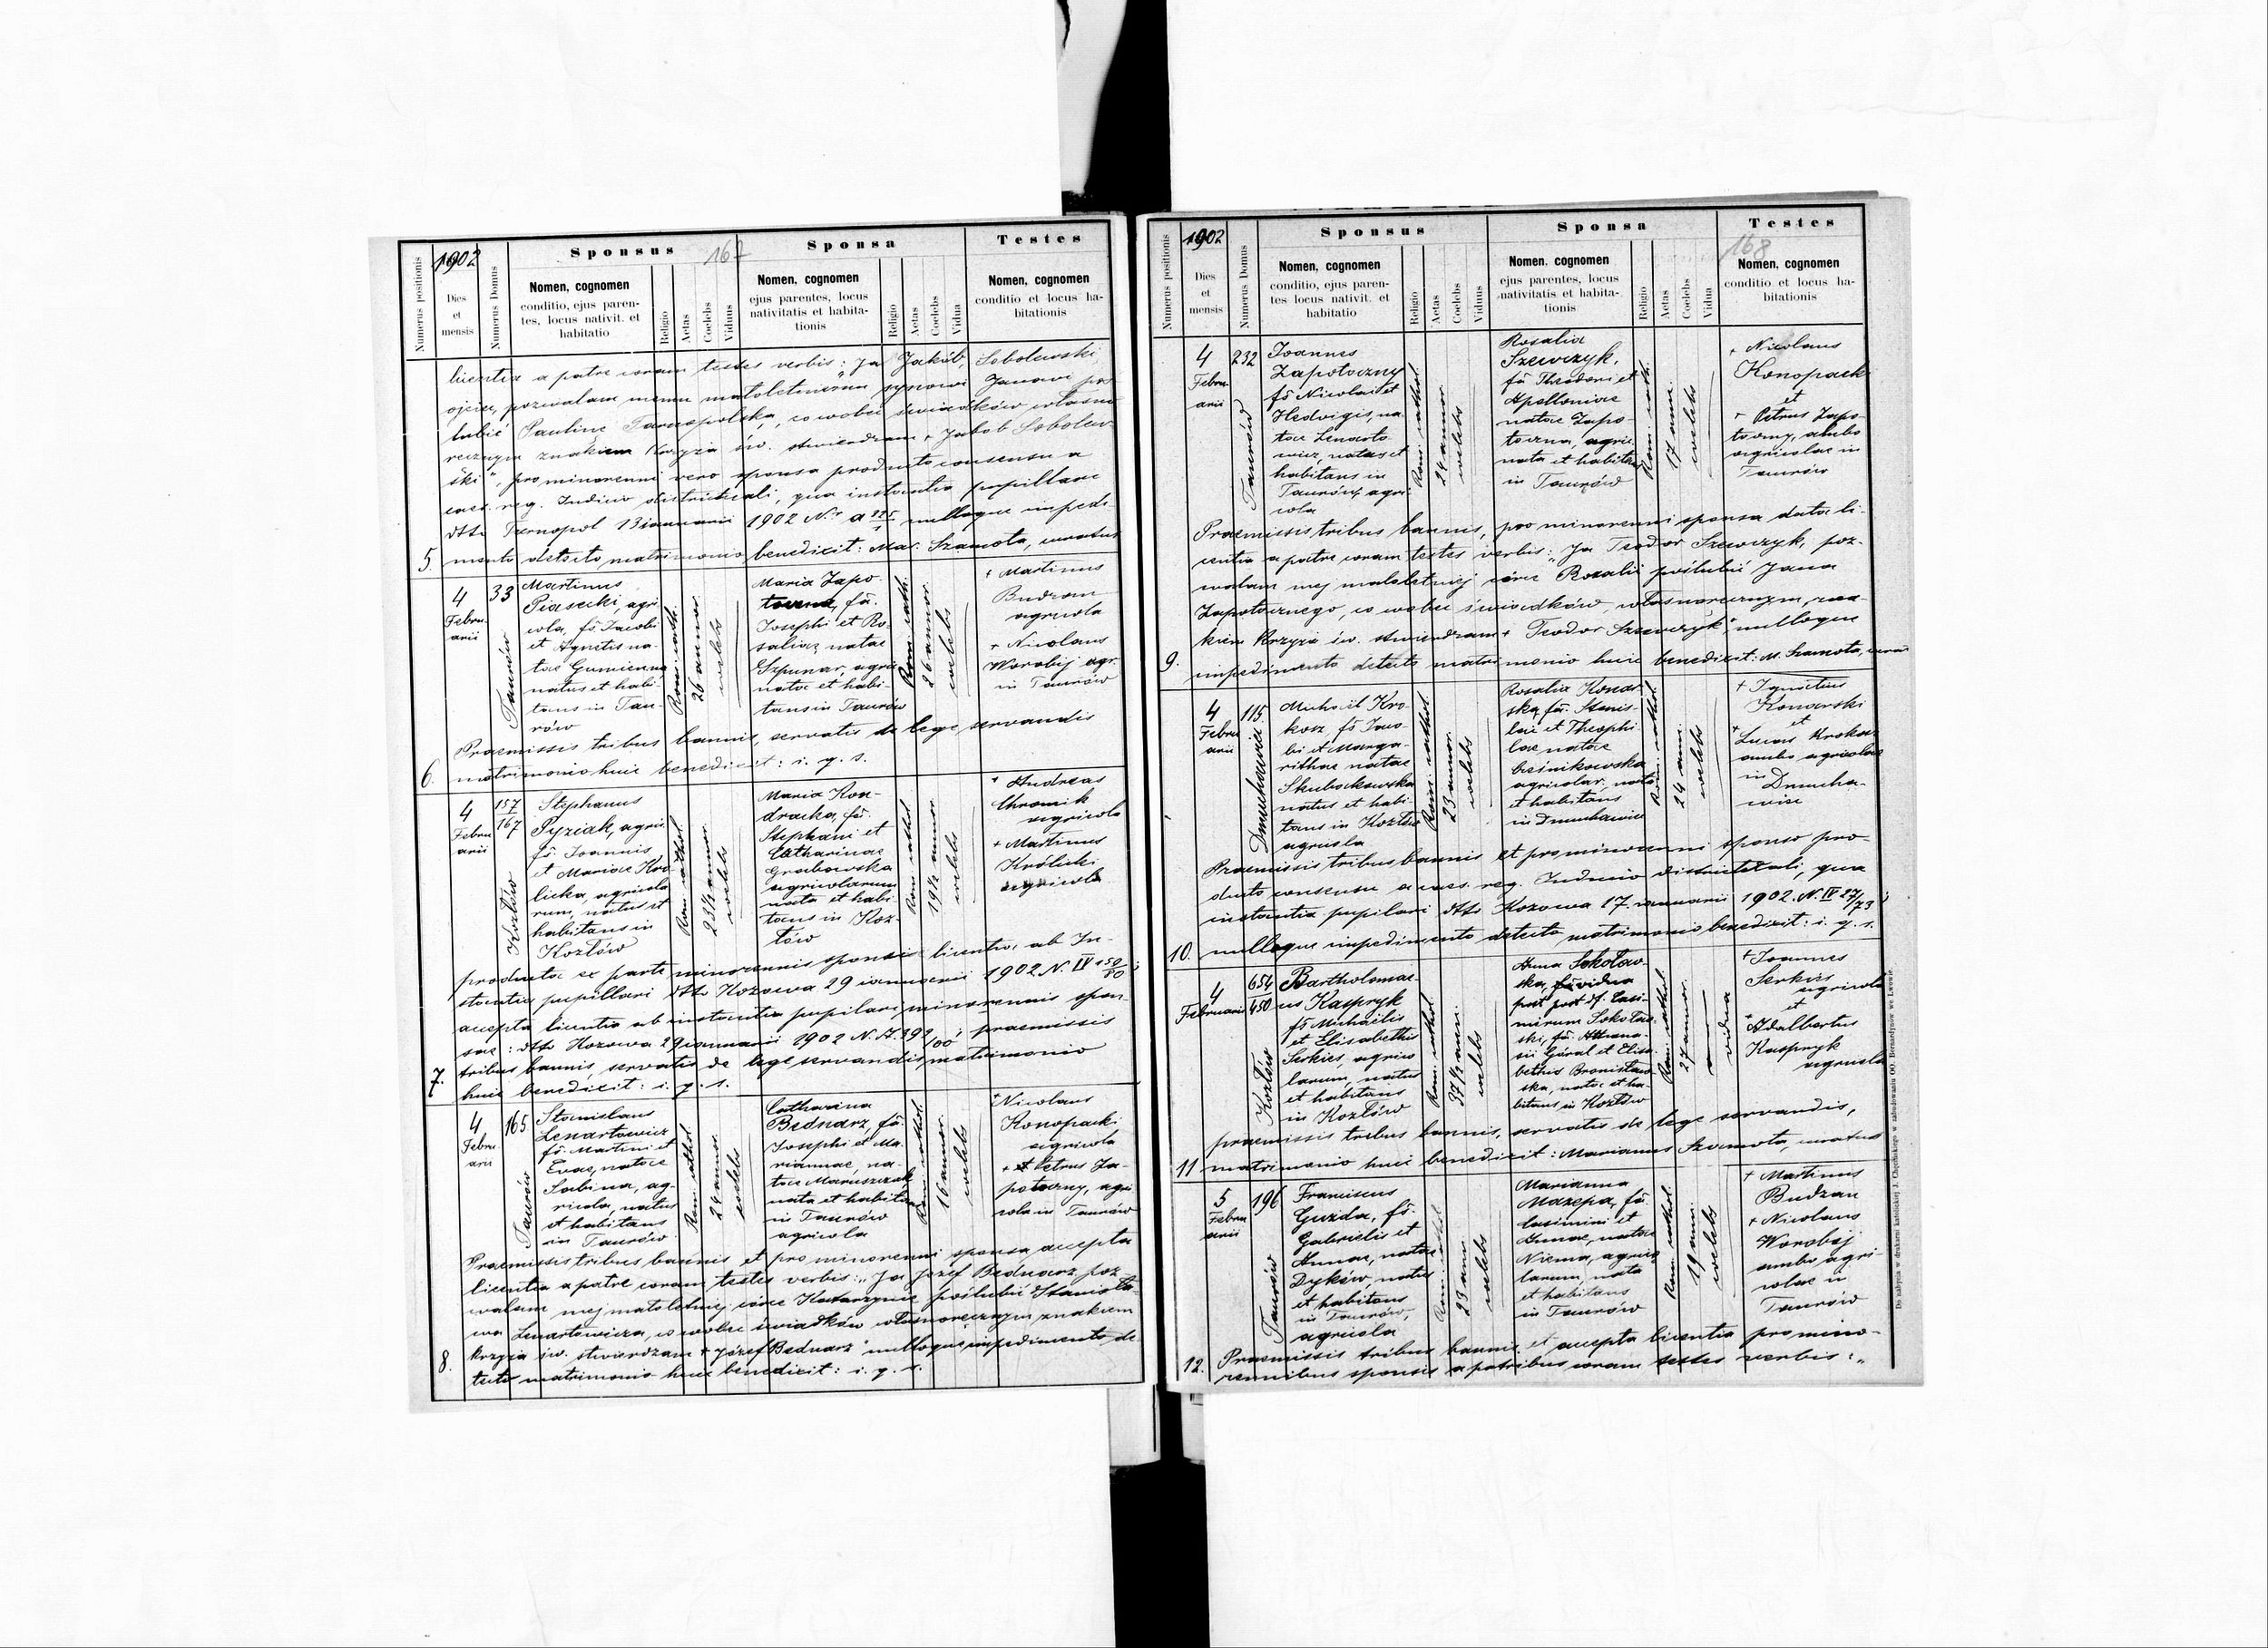 1902
167
Numerus positionis
Dies
et
mensis
Numerus Domus
Sponsus
Nomen, cognomen
conditio, ejus paren-
tes, locus nativit. et
habitatio
Religio
Aetas
Coelebs
Viduus
Sponsa
Nomen, cognomen
ejus parentes, locus
nativitatis et habita-
tionis
Religio
Aetas
Coelebs
Vidua
Testes
Nomen, cognomen
conditio et locus ha-
bitationis
licentia a patre coram testes verbis: "Ja Jakób Sobolewski
ojciec, pozwalam memu małoletniemu synowi Janowi po-
lubić Paulinę Tarnopolską, co wobec świadków własno-
ręcznym znakiem Krzyża św. stwierdzam + Jakób Sobolew-
ski", pro minorenni vero sponsa producto consensu a
caes. reg. Judicio districtuali, qua instantia pupillari
dtto Tarnopol 13 ianuarii 1902 Nr. a nulloque impedi-
5. mento detecto matrimonio benedixit: Mar. Szamota, curatus
4
Febru-
arii
33
Taurów
Martinus
Piasecki, agri-
cola, fs. Jacobi
et Agnetis na-
tae Gumienna
natus et habi-
tans in Tau-
rów
Rom. cath.
26 annor.
coelebs
Maria Zapo-
toczna, fa.
Josephi et Ro-
saliae natae
Szpunar, agric.
nata et habi-
tans in Taurów
Rom. cath.
26 annor.
coelebs
+ Martinus
Budzan
agricola
+ Nicolaus
Worobij agr.
in Taurów
Praemissis tribus bannis, servatis de lege servandis
6. matrimonio huic benedixit: i. q. s.
4
Febru-
arii
157
167
Kozłów
Stephanus
Pyziak, agric.
fs. Joannis
et Mariae Kró-
licka, agricola-
rum, natus et
habitans in
Kozłów
Rom. cathol.
23½ annor.
coelebs
Maria Kon-
dracka, fa.
Stephani et
Catharinae
Grabowska
agricolarum
nata et habi-
tans in Koz-
łów
Rom. cathol.
19½ annor.
coelebs
+ Andreas
Chromik
agricola
+ Martinus
Królicki
agricola
producta ex parte minorennis sponsi licentia ab In-
stantia pupillari dtto Kozowa 29 ianuarii 1902 N. IV 150/50;
accepta licentia ab instantia pupilari minorennis spon-
sae: dtto Kozowa 29 ianuarii 1902 N. A. 392/00; praemissis
tribus bannis, servatis de lege servandis, matrimonio
7. huic benedixit: i. q. s.
4
Febru-
arii
165
Taurów
Stanislaus
Lenartowicz
fs. Martini et
Evae, natae
Sabina, ag-
ricola, natus
et habitans
in Taurów
Rom. cathol.
24 annor.
coelebs
Catharina
Bednarz, fa.
Josephi et Ma-
riannae, na-
tae Maruszczak
nata et habitans
in Taurów
agricola
Rom. cathol.
16 annor.
coelebs
+ Nicolaus
Konopacki
agricola
+ Petrus Za-
potoczny, agri-
cola in Taurów
Praemissis tribus bannis et pro minorenni sponsa accepta
licentia a patre coram testes verbis: "Ja Józef Bednarz poz-
walam mej małoletniej córce Katarzynie poślubić Stanisła-
wa Lenartowicza, co wobec świadków własnoręcznym znakiem
krzyża św. stwierdzam + Józef Bednarz" nulloque impedimento de-
8. tecto matrimonio huic benedixit: i. q. s.
1902
168
Numerus positionis
Dies
et
mensis
Numerus Domus
Sponsus
Nomen, cognomen
conditio, ejus paren-
tes locus nativit. et
habitatio
Religio
Aetas
Coelebs
Viduus
Sponsa
Nomen, cognomen
ejus parentes, locus
nativitatis et habita-
tionis
Religio
Aetas
Coelebs
Vidua
Testes
Nomen, cognomen
conditio et locus ha-
bitationis
4
Febru-
arii
232
Taurów
Joannes
Zapotoczny
fs Nicolai et
Hedvigis, na-
tae Lenarto-
wicz, natus et
habitans in
Taurów, agri-
cola
Rom. cathol.
24 annor.
coelebs
Rosalia
Szewczyk,
fa Theodori et
Apolloniae
natae Zapo-
toczna, agric.
nata et habitans
in Taurów
Rom. cath.
17 ann.
coelebs
+ Nicolaus
Konopacki
et
+ Petrus Zapo-
toczny, ambo
agricolae in
Taurów
Praemissis tribus bannis, pro minorenni sponsa data li-
centia a patre coram testes verbis: "Ja Teodor Szewczyk, poz-
walam mej małoletniej córce Rozalii poślubić Jana
Zapotocznego, co wobec świadków, własnoręcznym zna-
kiem Krzyża św. stwierdzam + Teodor Szewczyk", nulloque
9. impedimento detecto matrimonio huic benedixit: M. Szamota, curat
4
Febru-
arii
115
Dmuchawiec
Michael Kro-
kosz, fs Jaco-
bi et Marga-
rithae natae
Skubockowska
natus et habi-
tans in Kozłów
agricola
Rom. cathol.
23 annor.
coelebs
Rosalia Konar-
ska, fa. Stanis-
lai et Theophi-
lae natae
Leśnikowska
agricolar, nata
et habitans
in Dmuchawiec
Rom. cathol.
24 ann.
coelebs
+ Ignatius
Konarski
et
+ Lucas Krokosz
ambo agricolae
in
Dmucha-
wiec
Praemissis tribus bannis et pro minorenni sponso pro-
ducto consensu a caes. reg. Iudicio districtuali, qua
instantia pupilari dtto Kozowa 17 ianuarii 1902 N. IV 27/73;
10. nulloque impedimento detecto matrimonio benedixit: i. q. s.
4
Februarii
654
450
Kozłów
Bartholomae-
us Kaspryk
fs Michaelis
et Elisabethis
Serkies, agrico-
larum, natus
et habitans
in Kozłów
Rom. cathol.
37½ ann.
coelebs
Anna Sokołow-
ska, vidua
post Casi-
mirum Sokołow-
ski, fa. Athana-
sii Góral et Elisa-
bethis Bronisław-
ska, nata et ha-
bitans in Kozłów
Rom. cathol.
27 annor.
vidua
+ Joannes
Serkies
agricola
et
+ Adalbertus
Kaspryk
agricola
praemissis tribus bannis, servatis de lege servandis,
11 matrimonio huic benedixit: Marianus Szamota, curatus
5
Febru-
arii
196
Taurów
Franciscus
Guzda, fs.
Gabrielis et
Annae, natae
Dyków, natus
et habitans
in Taurów,
agricola
Rom. cathol
23 ann
coelebs
Marianna
Mazepa, fa
Casimiri et
Annae, natae
Niema, agrico-
larum, nata
et habitans
in Taurów
Rom. cathol.
19 ann.
coelebs
+ Martinus
Budzan
+ Nicolaus
Worobij
ambo agri-
colae in
Taurów
Praemissis tribus bannis et accepta licentia pro mino-
12. rennibus sponsis a patribus coram testes verbis: "
Do nabycia w drukarni katolickiej J. Chęcińskiego w zabudowaniu OO. Bernardynów we Lwowie.